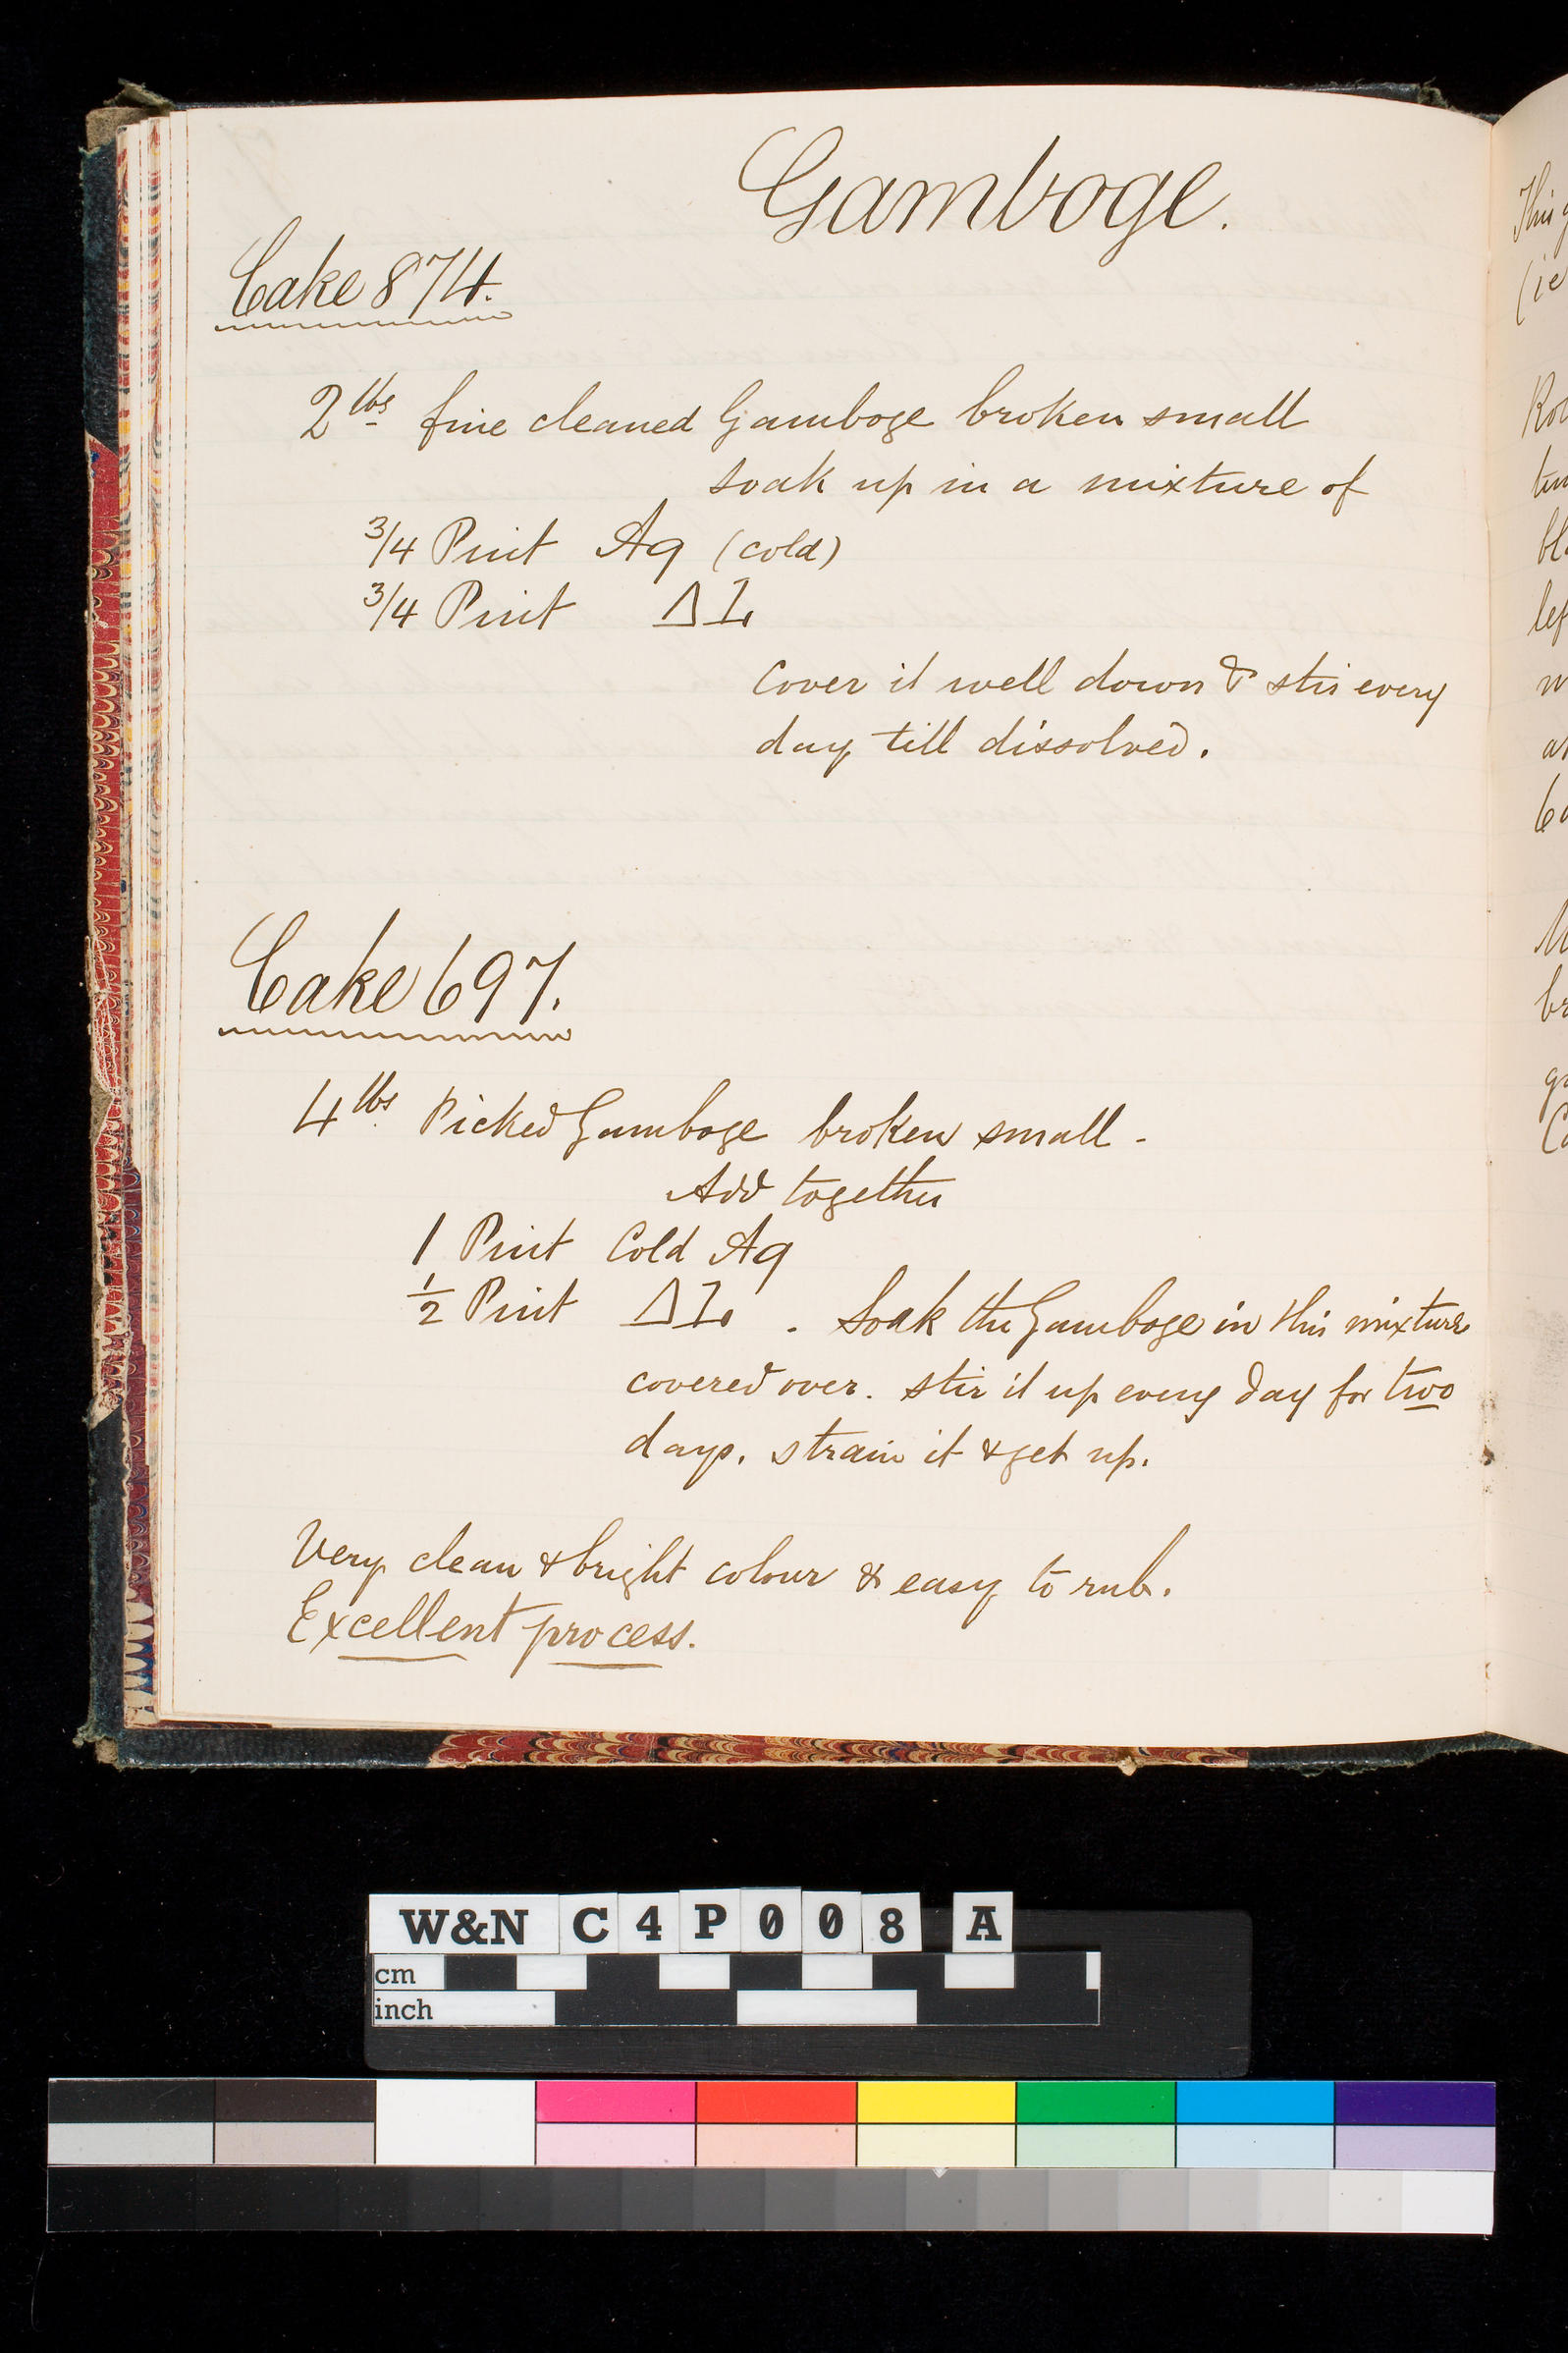 Gamboge.
Cake 874.
2 lbs fine cleaned Gamboge broken small
soak up in a mixture of
3/4 Pint Aq (cold)
3/4 Pint
Cover it well down & stir every
day till dissolved.
Cake 697.
4 lbs Picked Gamboge broken small -
Add together
1 Pint Cold Aq
1/2 Pint . Soak the Gamboge in this mixture
covered over. stir it up every day for two
days. strain it & get up.
Very clean & bright colour & easy to rub.
Excellent process.
W&N C4P008 A
cm
inch